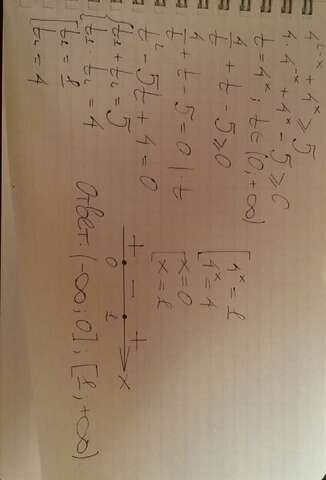 4^{1-x} + 4^x ≥ 5
4 · 4^{-x} + 4^x - 5 ≥ 0
t = 4^x ; t ∈ (0, +∞)
4/t + t - 5 ≥ 0
4/t + t - 5 = 0 | · t
t² - 5t + 4 = 0
{ t₁ + t₂ = 5
{ t₁ · t₂ = 4
[ t₁ = 1
[ t₂ = 4
[ 4^x = 1
[ 4^x = 4
[ x = 0
[ x = 1
+ - +
0 1 x
Ответ: (-∞; 0] ; [1, +∞)